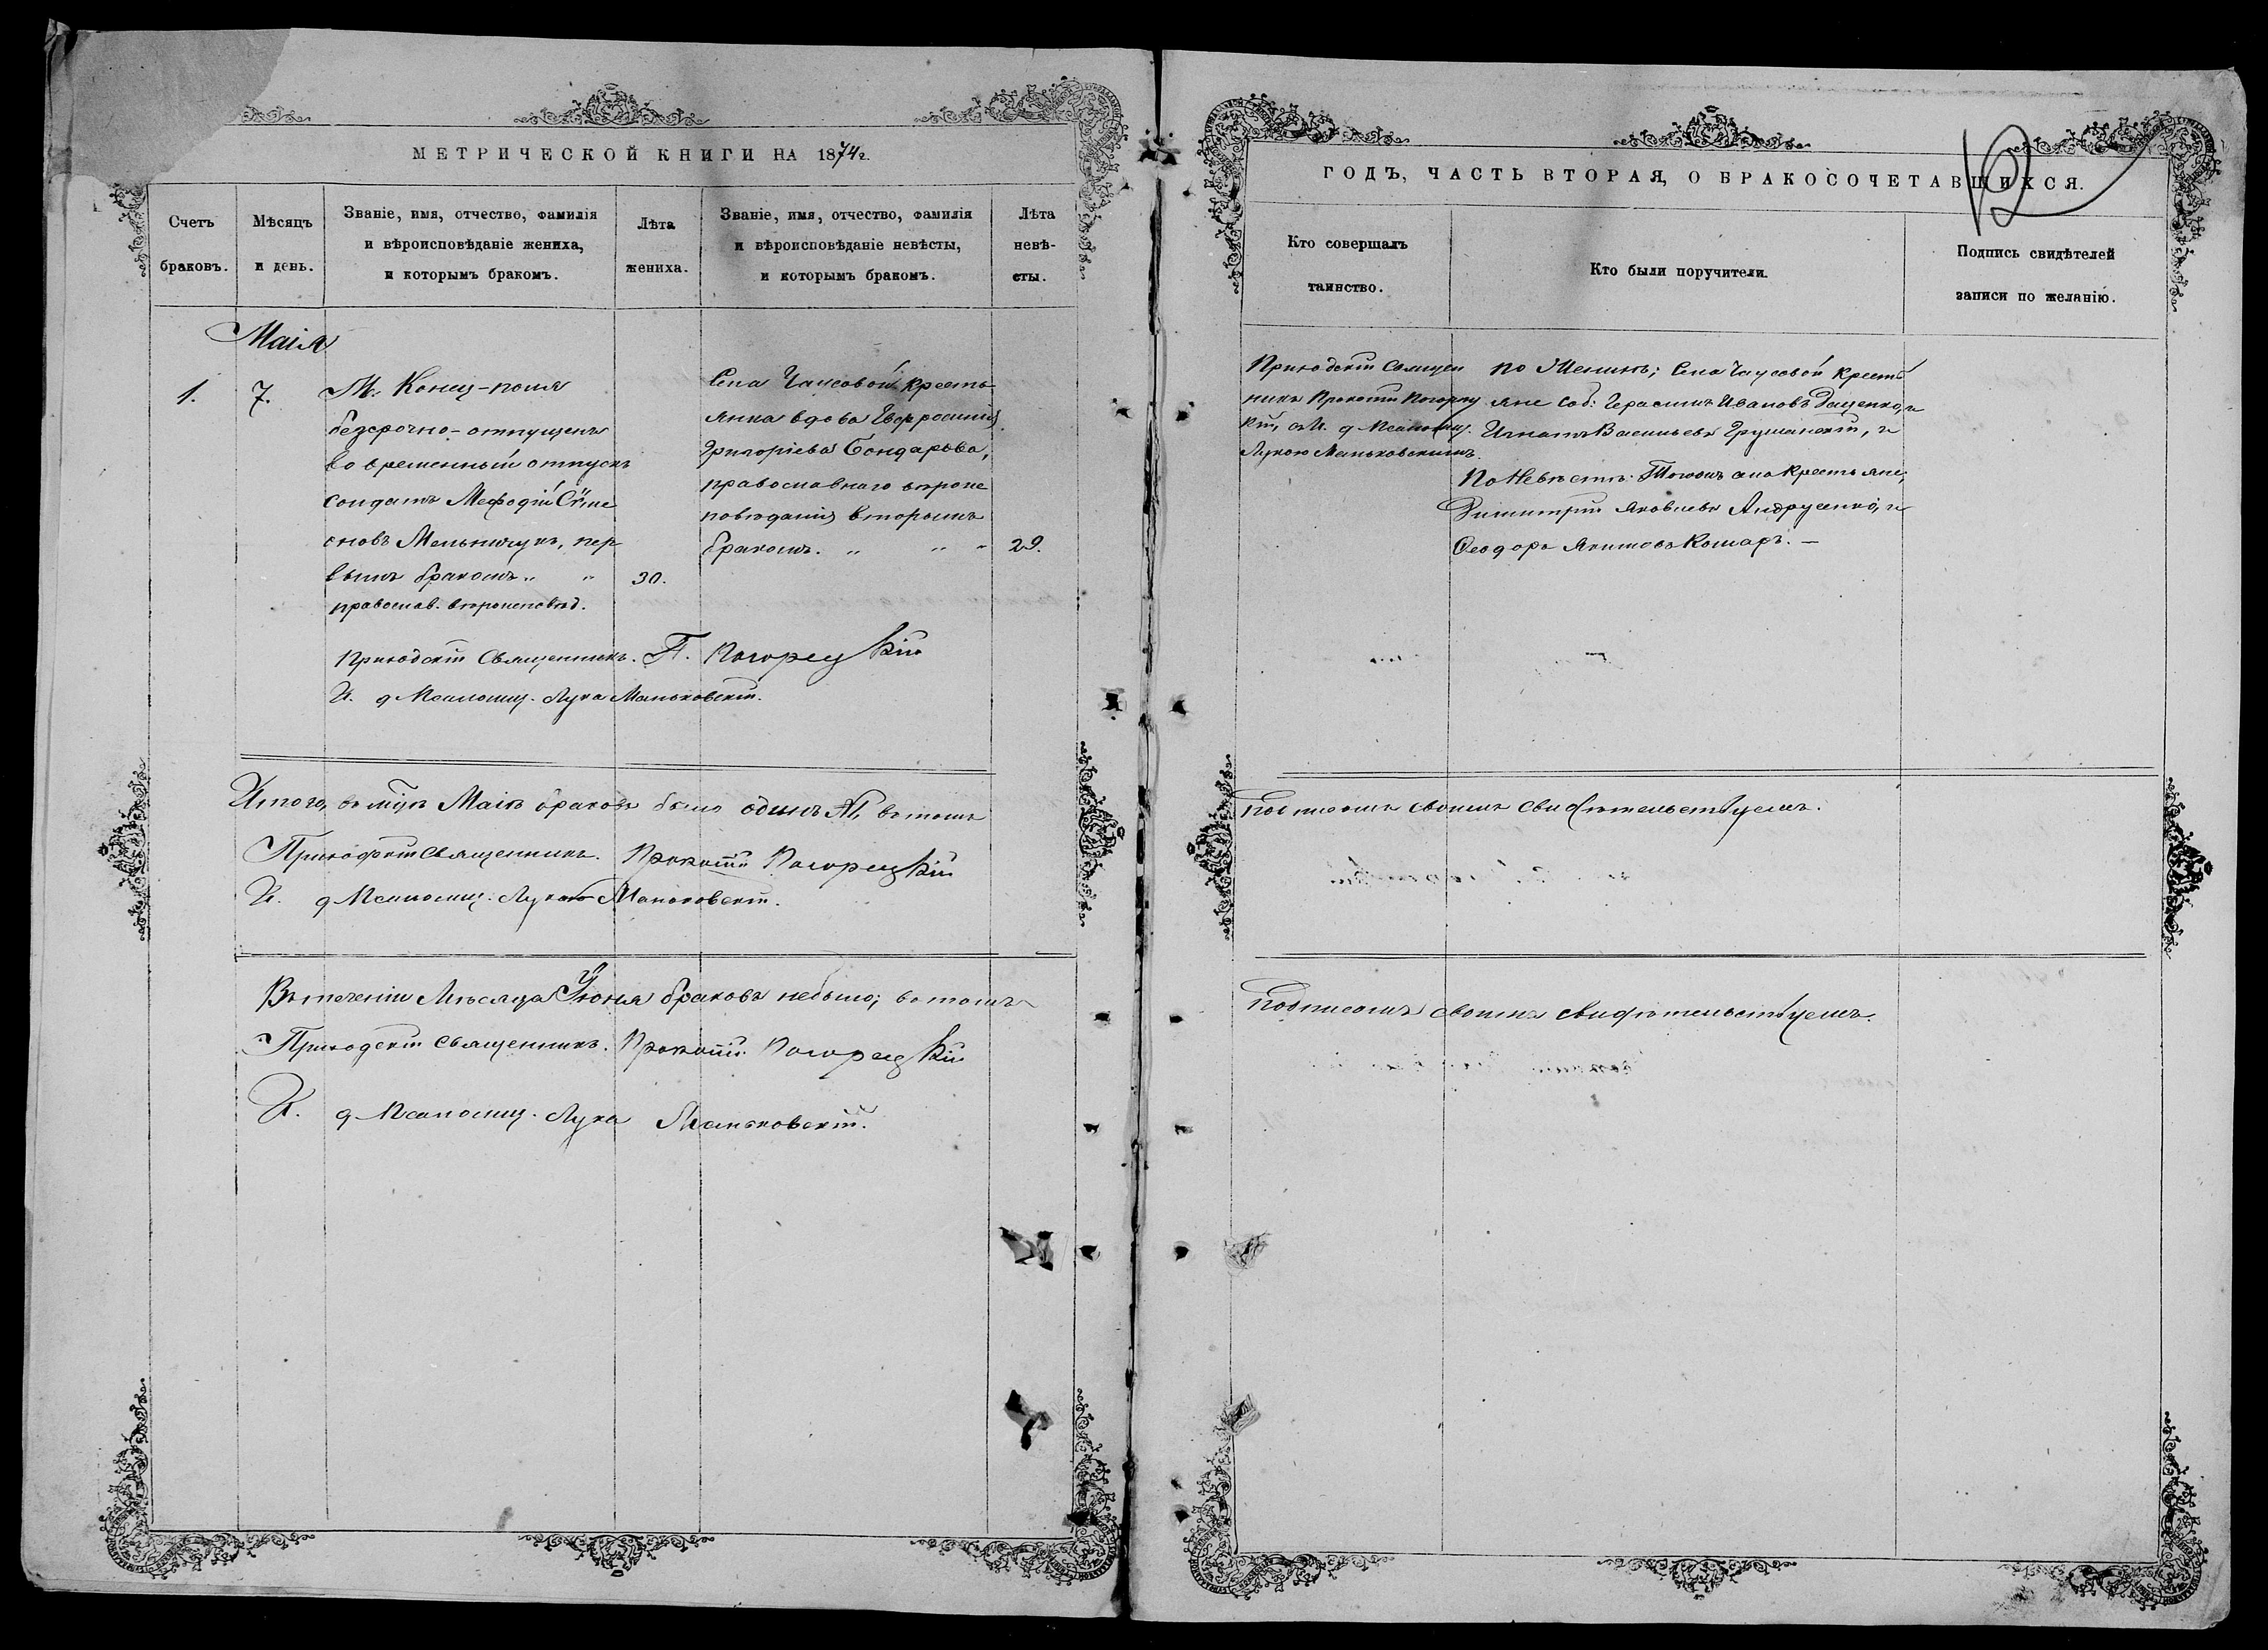 МЕТРИЧЕСКОЙ КНИГИ НА 1874г.
Счетъ браковъ.
Мѣсяцъ и день.
Званіе, имя, отчество, фамилія
и вѣроисповѣданіе жениха,
и которымъ бракомъ.
Лѣта жениха.
Званіе, имя, отчество, фамилія
и вѣроисповѣданіе невѣсты,
и которымъ бракомъ.
Лѣта невѣ-
сты.
Маія
1.
7.
М. Конец-поля
безсрочно-отпущенъ
во временный отпускъ
солдатъ Мефодій
оновъ Мельничукъ, пер
вымъ бракомъ „ „
православ. вѣроисповѣд.
30.
Села Чаусовой кресть
янка вдова Евфросинія
Григоріева Бондарева,
православнаго вѣроис
повѣданія вторымъ
бракомъ. „ „ „
29.
Приходскій Священникъ. П. Погорецкій
И. д Псаломщ. Лука Маньковскій.
Итого, въ м-цѣ Маіѣ браковъ было одинъ №1, въ томъ
Приходскій Священникъ. Прокопій Погорецкій
И. д Псаломщ. Лука Маньковскій.
Въ теченіи Мѣсяца Іюня браковъ небыло; въ томъ
Приходскій Священникъ. Прокопій Погорецкій
И. д Псаломщ. Лука Маньковскій.
ГОДЪ, ЧАСТЬ ВТОРАЯ, О БРАКОСОЧЕТАВШИХСЯ.
12
Кто совершалъ
таинство.
Кто были поручители.
Подпись свидѣтелей
записи по желанію.
Приходскій Священ
никъ Прокопій Погорец
кій, съ И. д Псаломщ.
Лукою Маньковскимъ.
По Женихѣ; Села Чаусовой кресть
яне Соб: Герасимъ Ивановъ Дащенко, и
Игнатъ Васильевъ Грушанскій, и
По Невѣстѣ: Тогожъ села крестьяне,
Димитрій Яковлевъ Андрусенко, и
Ѳеодоръ Якимовъ Комаръ. —
Подписомъ своимъ свидѣтельствуемъ.
Подписомъ своимъ свидѣтельствуемъ.